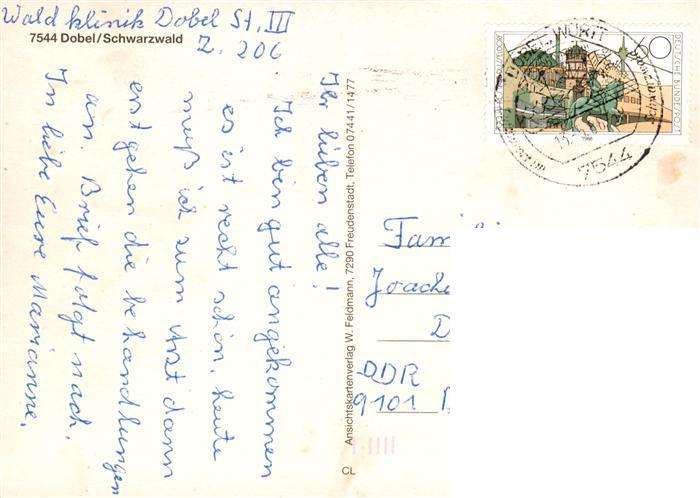 Waldklinik Dobel St. III
7544 Dobel/Schwarzwald
Z. 206
Ihr lieben alle!
Ich bin gut angekommen
es ist recht schön, heute
muß ich zum Arzt dann
erst gehen die behandlungen
an. Brief folgt nach.
In liebe Eure Marianne.
Ansichtskartenverlag W. Feldmann, 7290 Freudenstadt, Telefon 07441/1477
CL
60
DEUTSCHE BUNDESPOST
7544
Fam
Joach
D
DDR
9101